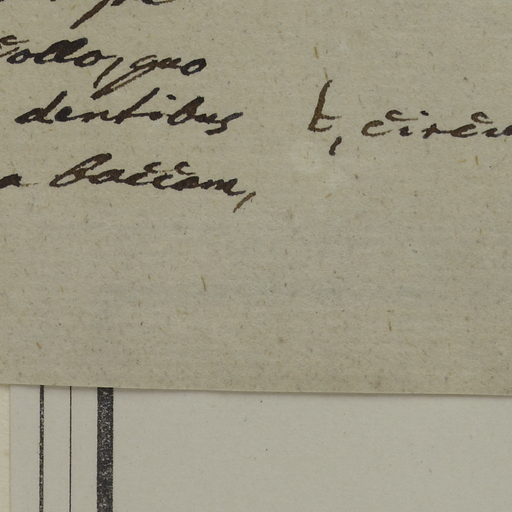 Collo, quo
dentibus
t, circu
a baccam,